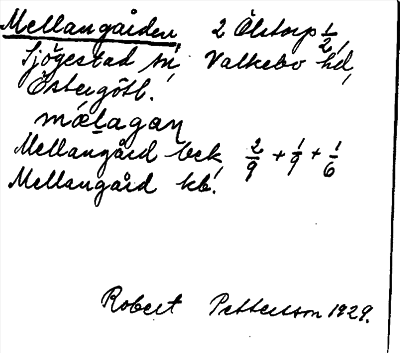 Mellangården 2 Ölstorp 1/2,
Sjögestad sn Valkebo hd,
Östergötl.
mæ̀lagaɳ
Mellangård beck 2/9 + 1/9 + 1/6
Mellangård kb.
Robert Petterson 1929.